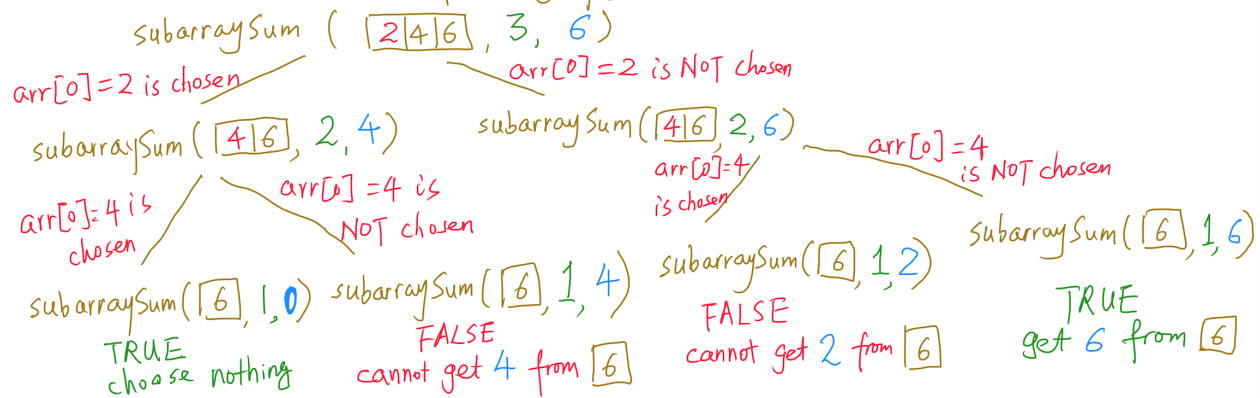 subarraySum ( 2|4|6 , 3, 6)
arr[0]=2 is chosen
arr[0]=2 is NOT chosen
subarraySum ( 4|6 , 2, 4)
subarraySum( 4|6 , 2, 6)
arr[0]=4 is
chosen
arr[0]=4 is
NOT chosen
arr[0]=4
is chosen
arr[0]=4
is NOT chosen
subarraySum( 6 , 1, 0)
TRUE
choose nothing
subarraySum( 6 , 1, 4)
FALSE
cannot get 4 from 6
subarraySum( 6 , 1, 2)
FALSE
cannot get 2 from 6
subarraySum( 6 , 1, 6)
TRUE
get 6 from 6